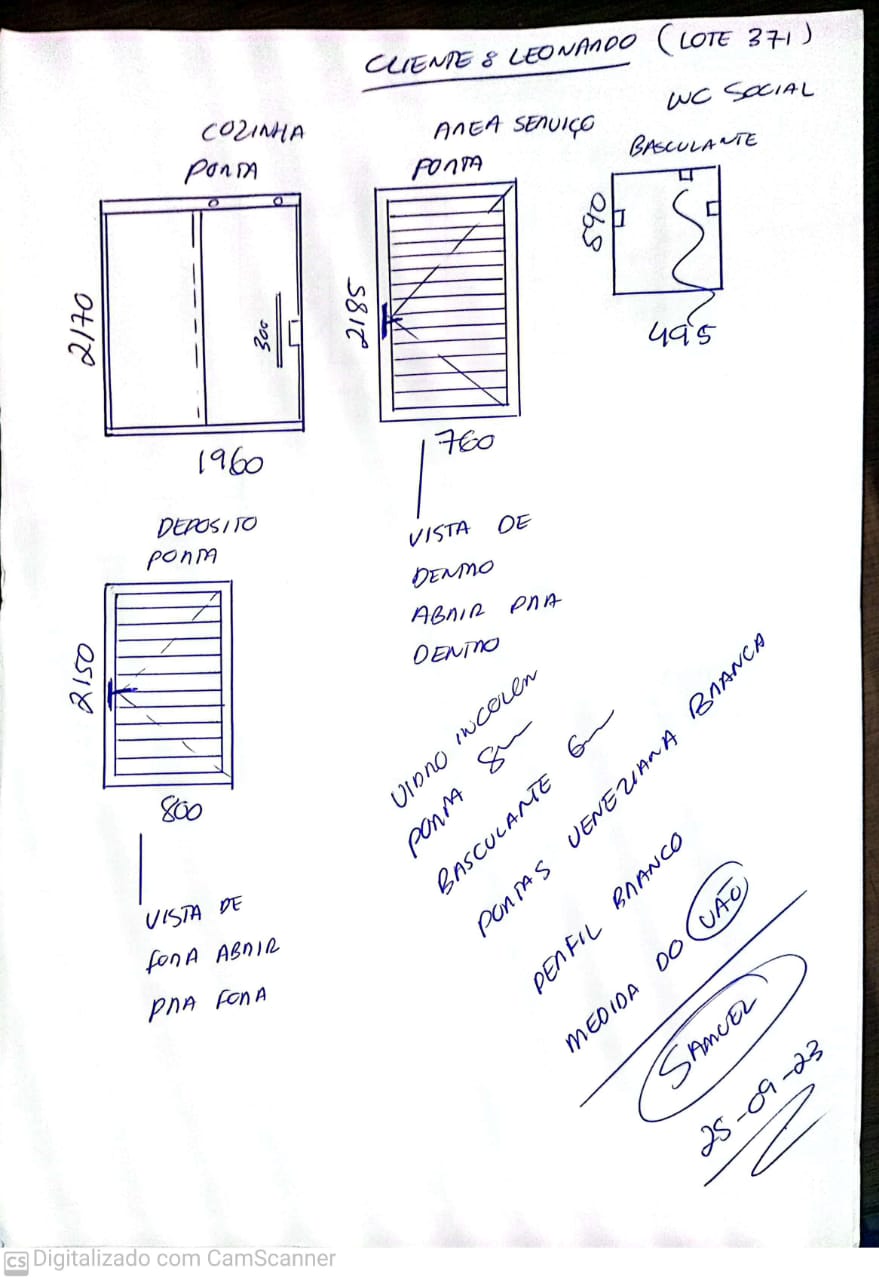 CLIENTE: LEONARDO (LOTE 371)
COZINHA
PORTA
2170
300
1960
AREA SERVIÇO
PORTA
2185
760
VISTA DE
DENTRO
ABRIR PRA
DENTRO
WC SOCIAL
BASCULANTE
590
495
DEPOSITO
PORTA
2150
800
VISTA DE
FORA ABRIR
PRA FORA
VIDRO INCOLOR
PORTA 8mm
BASCULANTE 6mm
PORTAS VENEZIANA BRANCA
PERFIL BRANCO
MEDIDA DO VÃO
SAMUEL
25-09-23
CS Digitalizado com CamScanner